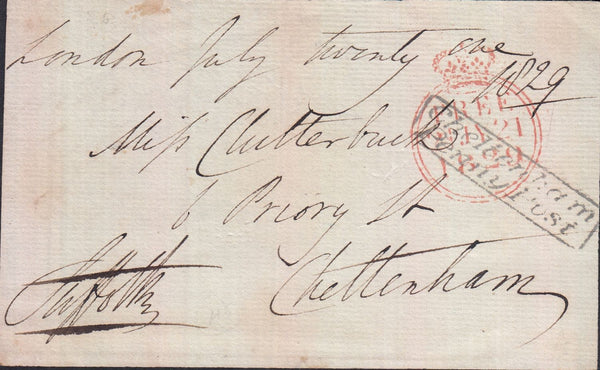 London July twenty one
1829
Miss Clutterbuck
6 Priory St
Cheltenham
Suffolk
FREE
21
Cheltenham
Penny Post